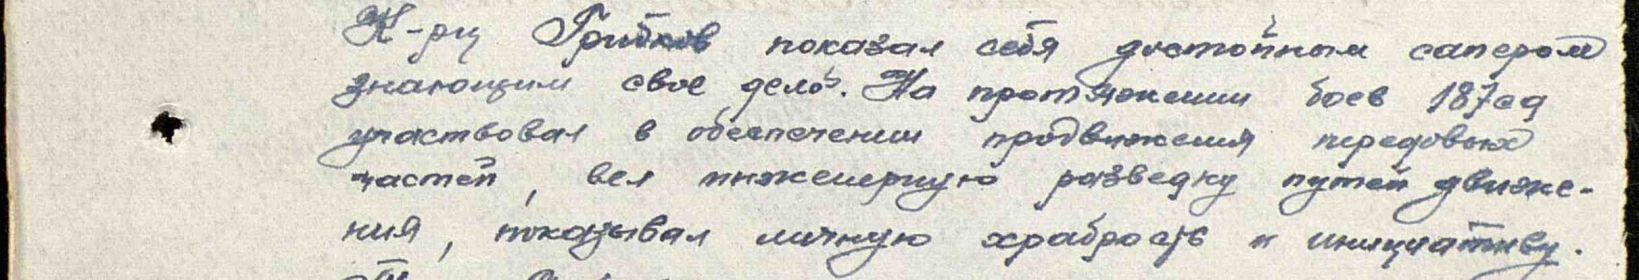 К-рц Грибков показал себя достойным сапером
знающим свое дело. На протяжении боев 187сд
участвовал в обеспечении продвижения передовых
частей, вел инженерную разведку путей движе-
ния, показывал личную храбрость и инициативу.